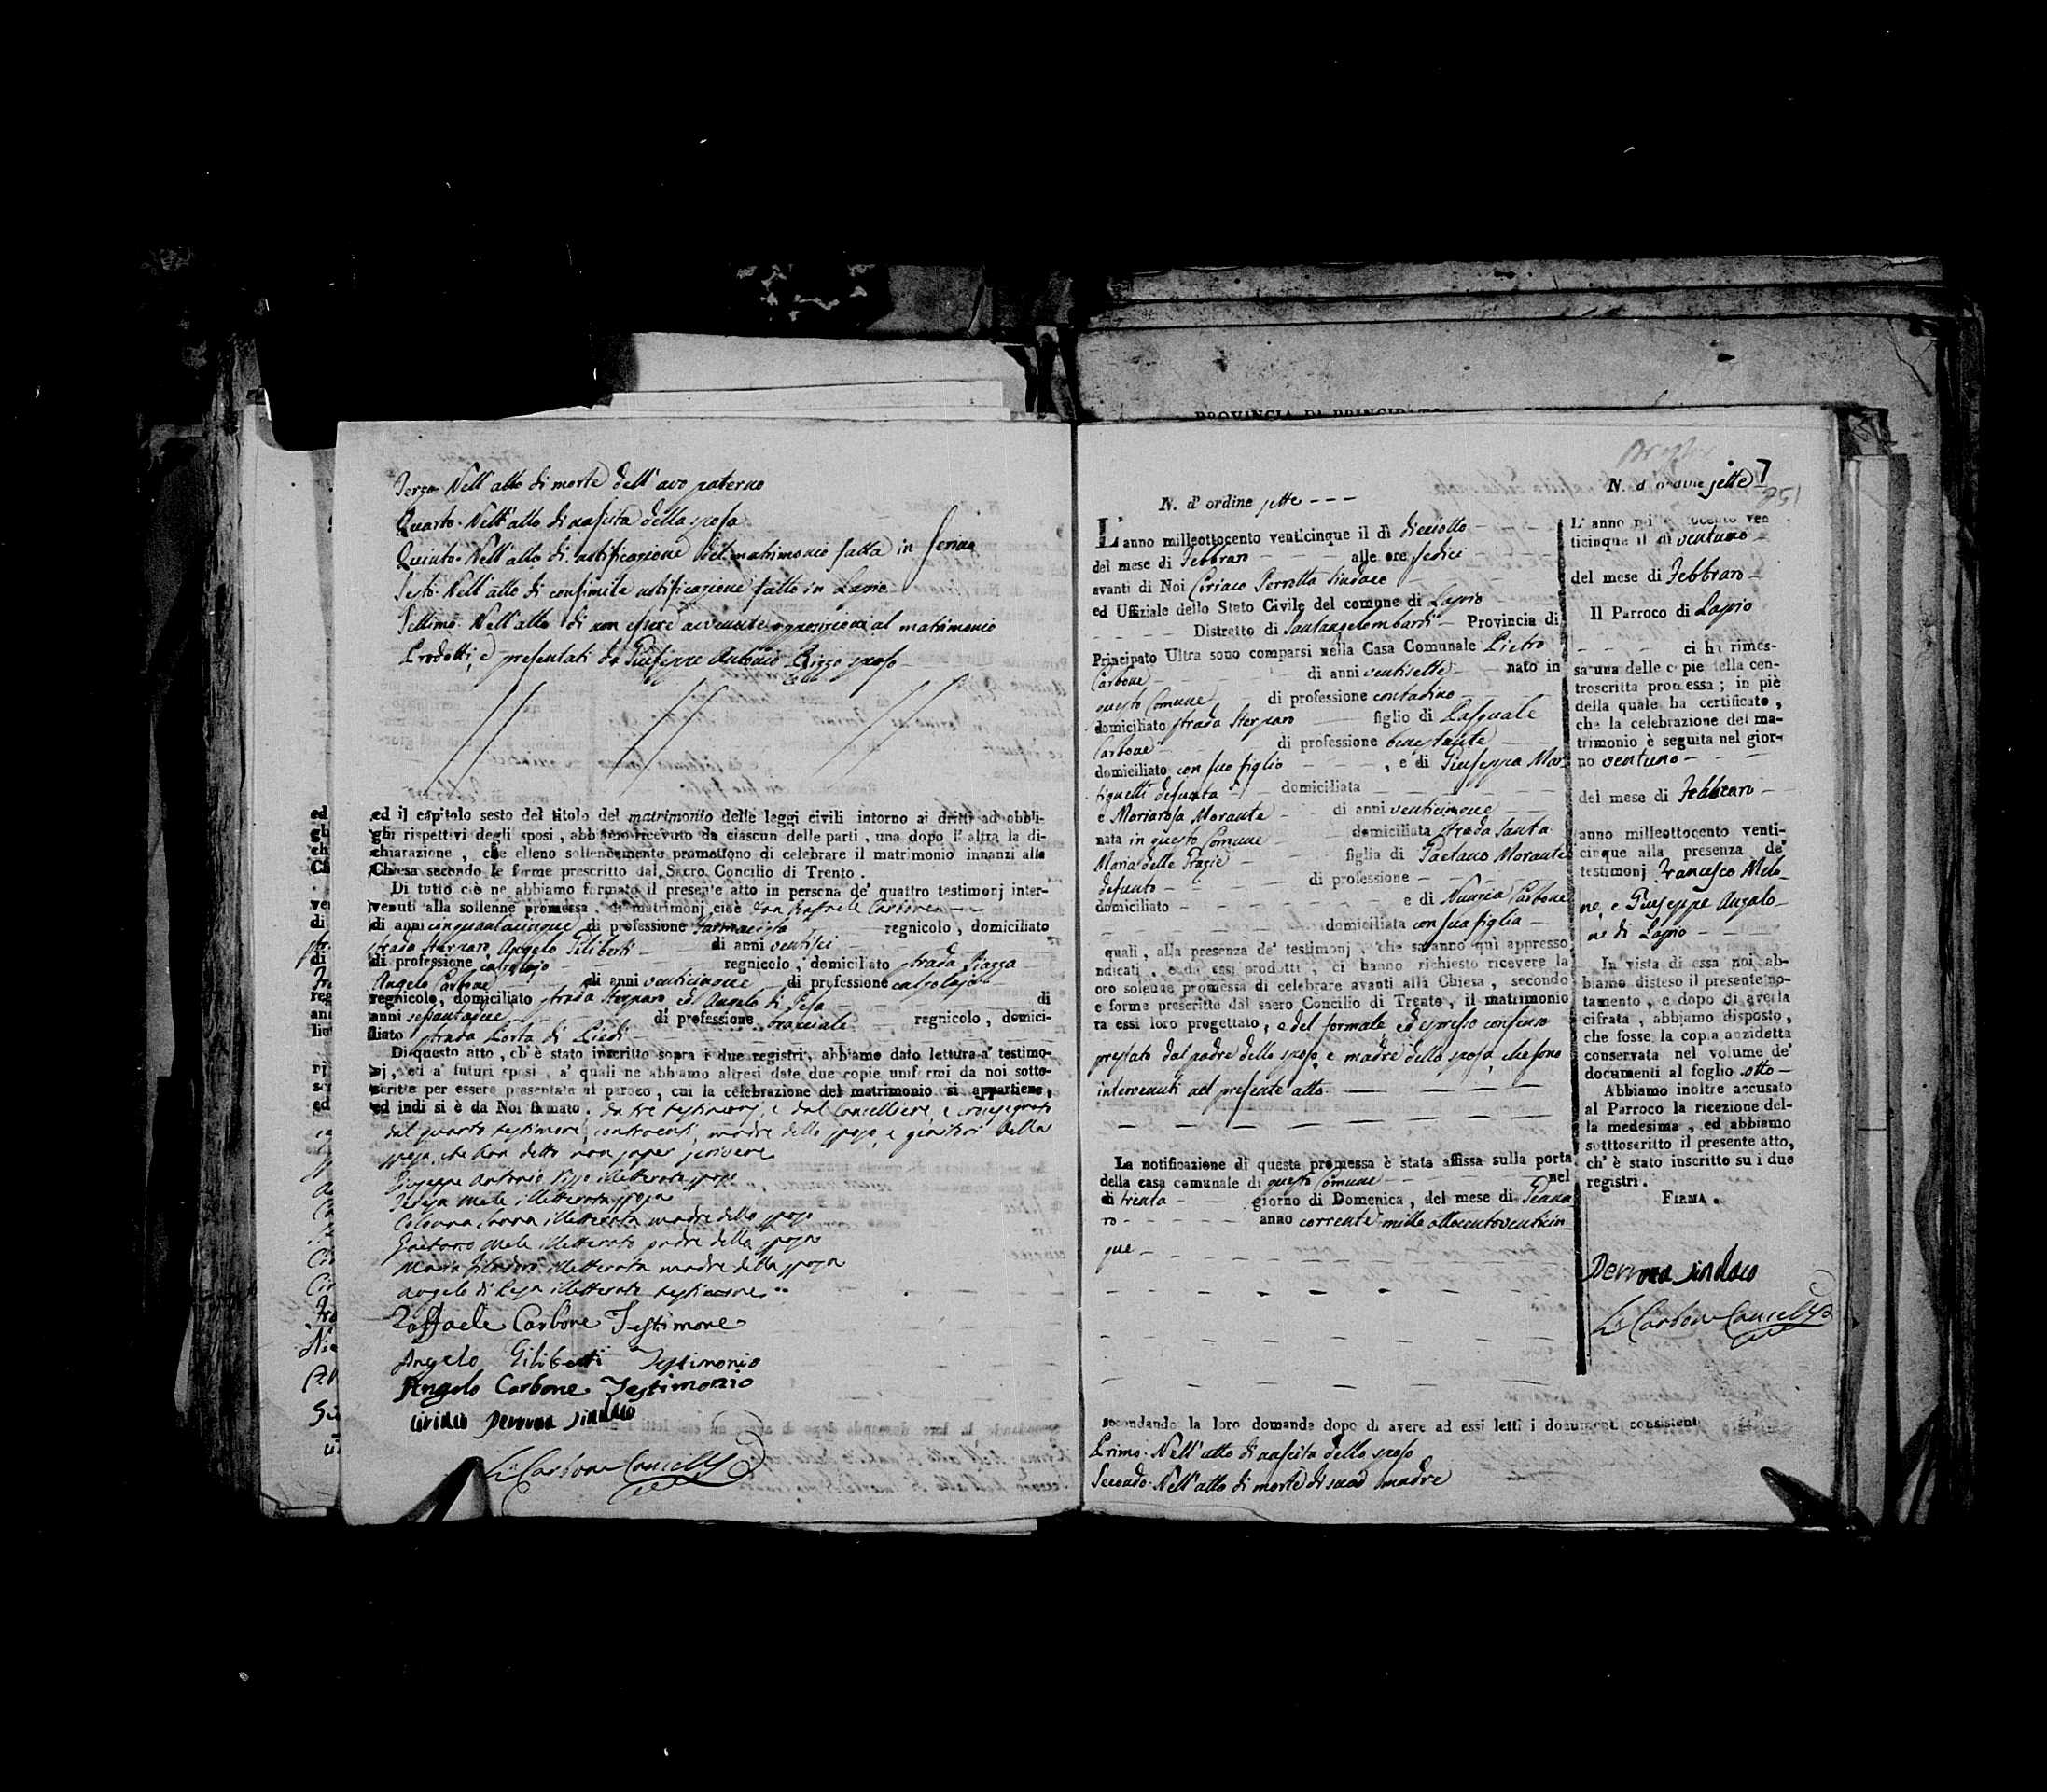 Terzo. Nell'atto di morte dell'avo paterno
Quarto. Nell'atto di nascita della sposa
Quinto. Nell'atto di notificazione del matrimonio fatta in Serino
Sesto. Nell'atto di consimile notificazione fatto in Lapio
Settimo. Nell'atto di non essere avvenuta opposizione al matrimonio
Prodotti, e presentati da Giuseppe Antonio Rizzo sposo
ed il capitolo sesto del titolo del matrimonio delle leggi civili intorno ai dritti ad obbli-
ghi rispettivi degli sposi, abbiamo ricevuto da ciascun delle parti, una dopo l'altra la di-
chiarazione, che elleno sollennemente promettono di celebrare il matrimonio innanzi alla
Chiesa secondo le forme prescritto dal Sacro Concilio di Trento.
Di tutto ciò ne abbiamo formato il presente atto in persona de' quattro testimonj inter-
venuti alla sollenne promessa di matrimonj cioè don Raffaele Carbone
di anni cinquantacinque di professione farmacista regnicolo, domiciliato
strada Sterparo, Angelo Giliberti di anni ventisei
di professione calzolajo regnicolo, domiciliato strada Piazza
Angelo Carbone di anni venticinque di professione calzolajo
regnicolo, domiciliato strada Sterparo ed Angelo di Pesa di
anni sessantanue di professione bracciale regnicolo, domici-
liato strada Porta di Piedi
Di questo atto, ch'è stato inscritto sopra i due registri, abbiamo dato lettura a' testimo-
nj, ed a' futuri sposi, a' quali ne abbiamo altresì date due copie uniformi da noi sotto-
scritte per essere presentate al paroco, cui la celebrazione del matrimonio si appartiene,
ed indi si è da Noi firmato. da tre testimonj, e dal Cancelliere, e crocesegnato
dal quarto testimone, contraenti, madre dello sposo, e genitori della
sposa, che han detto non saper scrivere
Giuseppe Antonio Rizzo illetterato sposo
Teresa Mele illetterata sposa
Colonna illetterata madre dello sposo
Gaetano Mele illetterato padre della sposa
Maria illetterata madre della sposa
Angelo di Pesa illetterato testimone
Raffaele Carbone Testimone
Angelo Giliberti Testimonio
Angelo Carbone Testimonio
Ciriaco Perrotta Sindaco
Carbone Cancell
N. d'ordine sette - - -
L'anno milleottocento venticinque il dì diciotto
del mese di Febbraro alle ore sedici
avanti di Noi Ciriaco Perrotta Sindaco
ed Uffiziale dello Stato Civile del comune di Lapio
Distretto di Santangelombardi Provincia di
Principato Ultra sono comparsi nella Casa Comunale Pietro
Carbone di anni ventisette nato in
questo Comune di professione contadino
domiciliato strada Sterparo figlio di Pasquale
Carbone di professione benestante
domiciliato con suo figlio, e di Giuseppa Mar
tignetti defunta domiciliata
e Mariarosa Morante di anni venticinque
nata in questo Comune domiciliata strada Santa
Maria delle Grazie figlia di Gaetano Morante
defunto di professione
domiciliato e di Nunzia Carbone
domiciliata con sua figlia
quali, alla presenza de' testimonj, che saranno qui appresso
ndicati, e da essi prodotti, ci hanno richiesto ricevere la
oro solenne promessa di celebrare avanti alla Chiesa, secondo
e forme prescritte dal sacro Concilio di Trento, il matrimonio
ra essi loro progettato, e del formale ed espresso consenso
prestato dal padre dello sposo e madre della sposa, che sono
intervenuti nel presente atto.
La notificazione di questa promessa è stata affissa sulla porta
della casa comunale di questo Comune nel
di trenta giorno di Domenica, del mese di Genna
ro anno corrente mille ottocentoventicin
que
secondando la loro domanda dopo di avere ad essi letti i documenti consistent
Primo. Nell'atto di nascita dello sposo
Secondo. Nell'atto di morte di sua madre
N. d'ordine sette 7
251
L'anno milleottocento ven
ticinque il dì ventuno
del mese di Febbraro
Il Parroco di Lapio
ci ha rimes-
sa una delle copie della con-
troscritta promessa; in piè
della quale ha certificato,
che la celebrazione del ma-
trimonio è seguita nel gior-
no ventuno
del mese di Febbraro
anno milleottocento venti-
cinque alla presenza de'
testimonj Francesco Melo
ne, e Giuseppe Angelo
ne di Lapio
In vista di essa noi ab-
biamo disteso il presente no-
tamento, e dopo di averla
cifrata, abbiamo disposto,
che fosse la copia anzidetta
conservata nel volume de'
documenti al foglio otto
Abbiamo inoltre accusato
al Parroco la ricezione del-
la medesima, ed abbiamo
sotttoscritto il presente atto,
ch'è stato inscritto su i due
registri.
FIRMA.
Perrotta Sindaco
Carbone Cancell
PROVINCIA DI PRINCIPATO